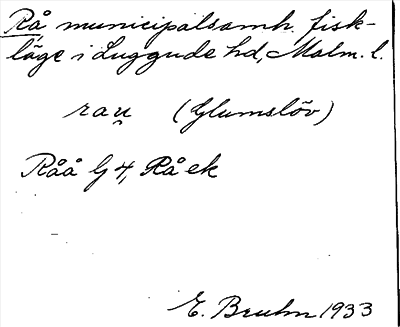 Rå, municipalsamh., fisk-
läge i Luggude hd, Malm. l.
rau̯ (Glumslöv)
Råå G 4, Rå ek
E. Bruhn 1933